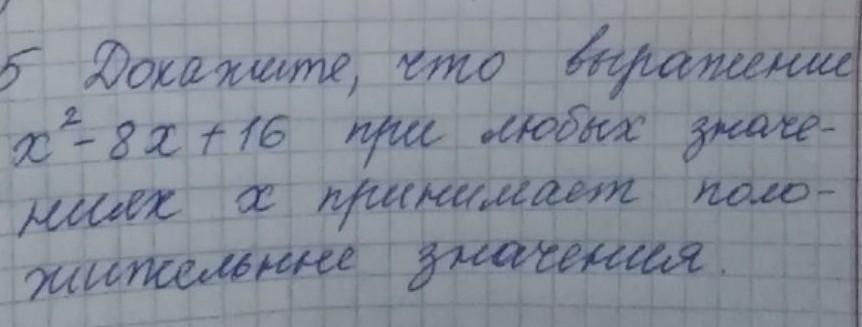 5 Докажите, что выражение
x² - 8x + 16 при любых значе-
ниях x принимает поло-
жительные значения.